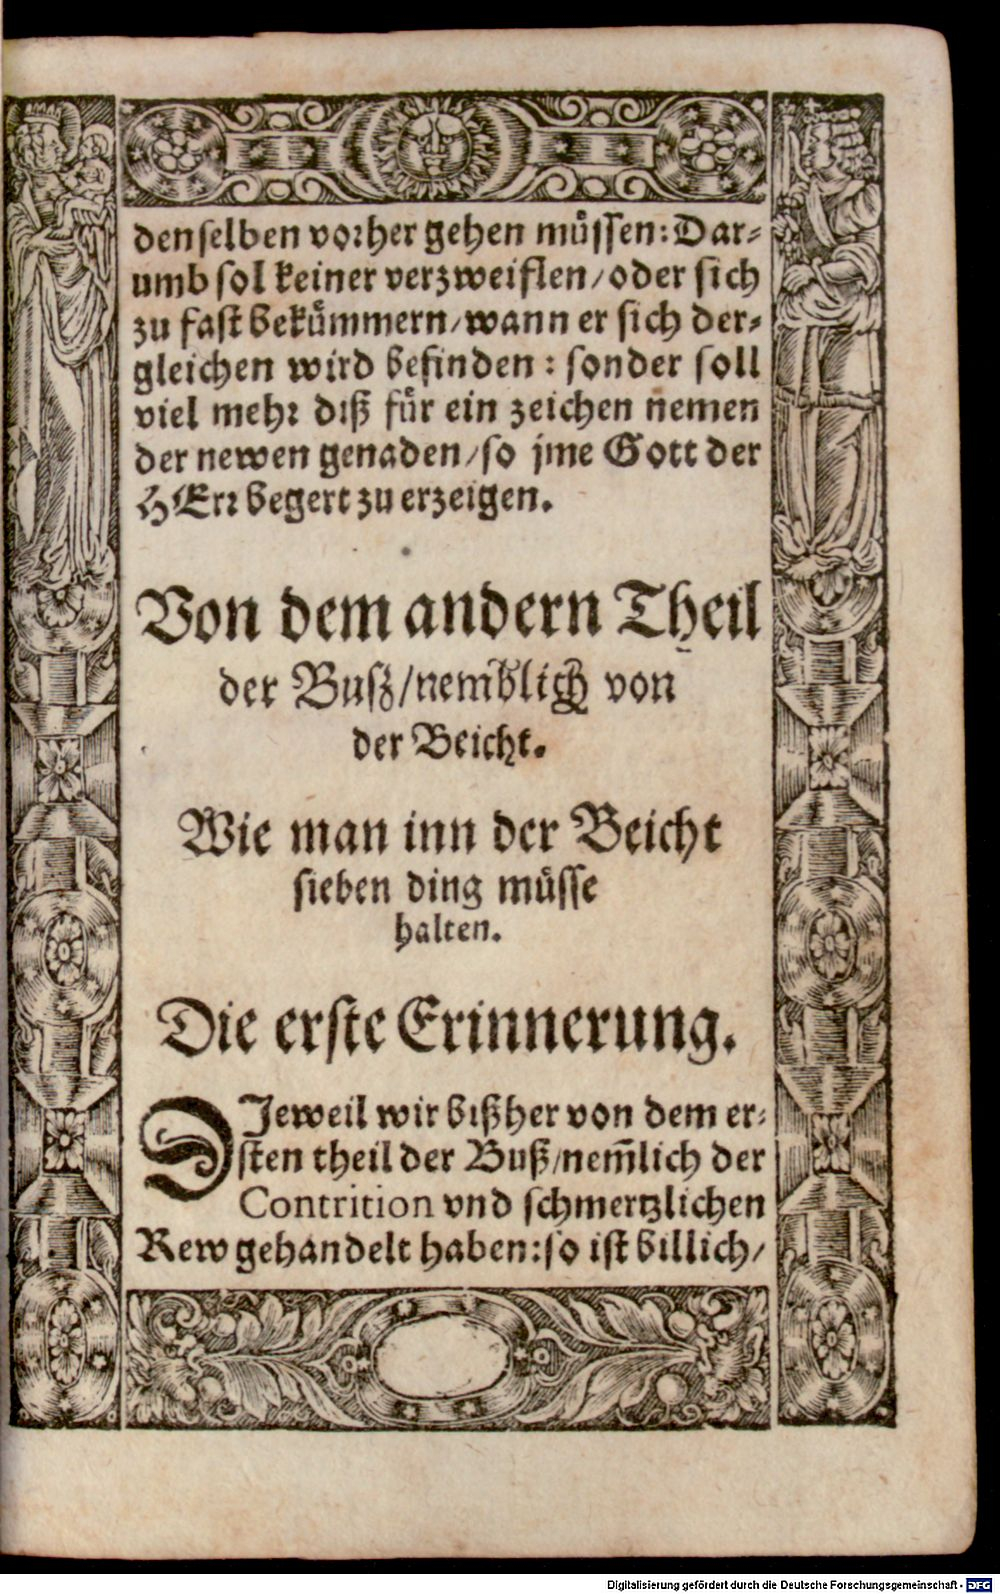 denselben vorher gehen müssen: Dar-
umb sol keiner verzweiflen/oder sich
zu fast bekümmern/wann er sich der-
gleichen wird befinden: sonder soll
viel mehr diß für ein zeichen nemen
der newen genaden/so jme Gott der
HErr begert zu erzeigen.
Von dem andern Theil
der Busz/nemblich von
der Beicht.
Wie man inn der Beicht
sieben ding müsse
halten.
Die erste Erinnerung.
DJeweil wir bißher von dem er-
sten theil der Buß/nem̃lich der
Contrition vnd schmertzlichen
Rew gehandelt haben: so ist billich/
Digitalisierung gefördert durch die Deutsche Forschungsgemeinschaft - DFG